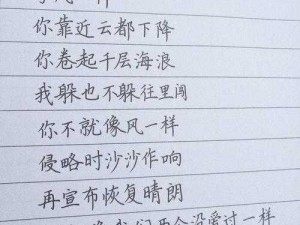 你靠近云都下降
你卷起千层海浪
我躲也不躲往里闯
你不就像风一样
侵略时沙沙作响
再宣布恢复晴朗
我们两个没爱过一样